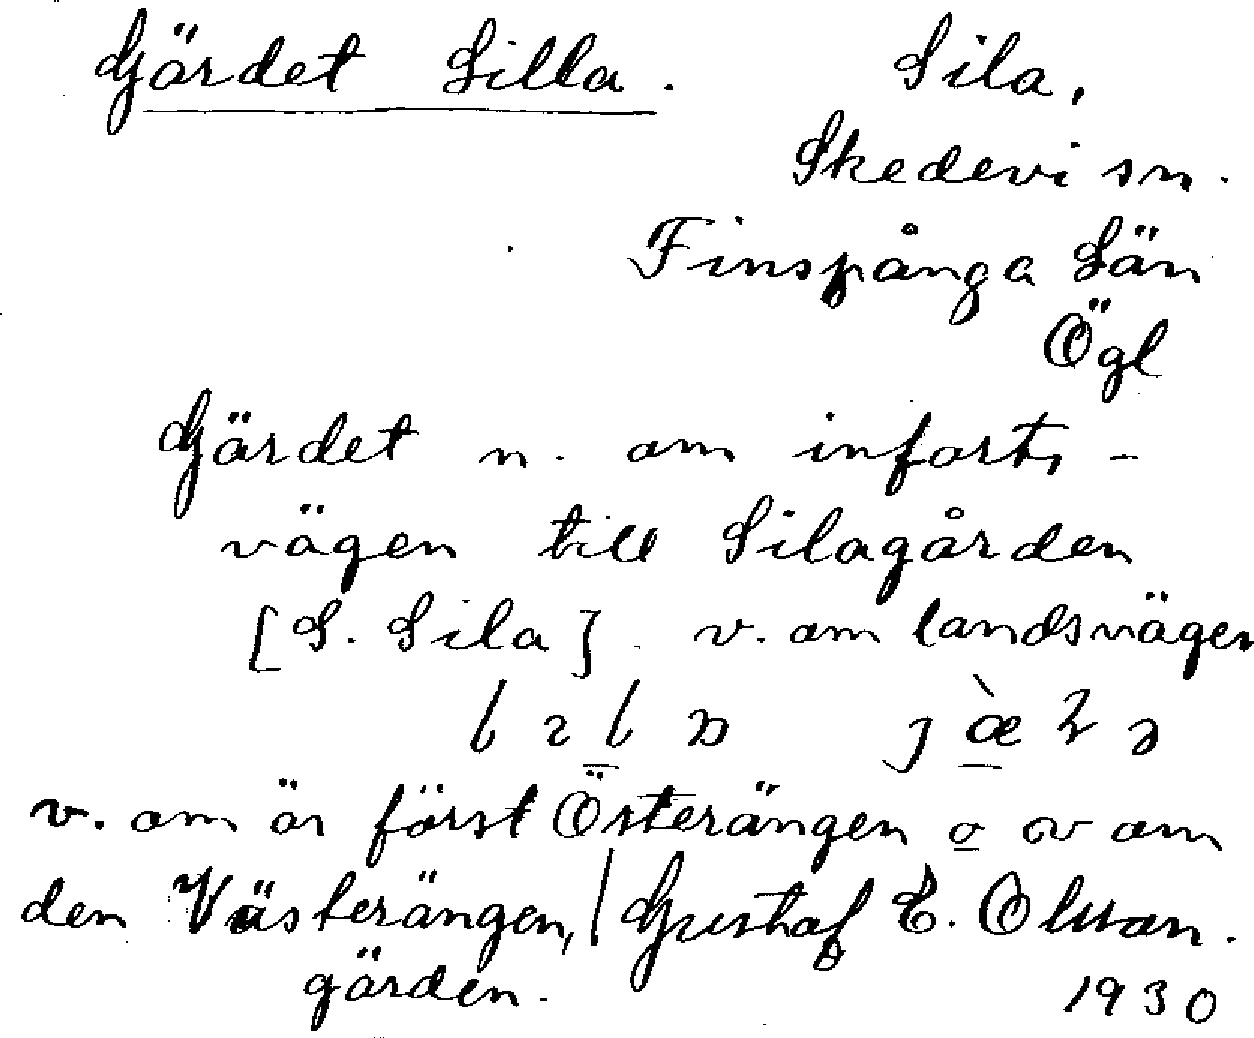 Gärdet Lilla. Sila,
Skedevi sn.
Finspånga Län
Ögl
Gärdet n. om infarts-
vägen till Silagården
[S. Sila]. v. om landsvägen
v. om är först Österängen o v om
den Västerängen, / Gustaf E. Olsson.
gärden. 1930